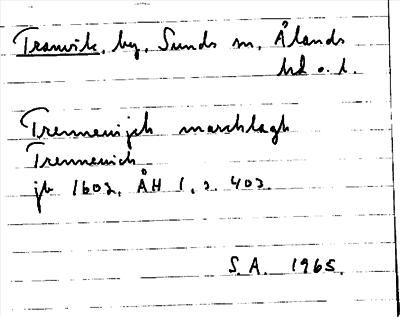 Tranvik, by, Sunds sn, Ålands
hd o. l.
Trennewijch marschlagh
Trennewich
jb 1602, ÅH 1, s. 402.
S.A. 1965.